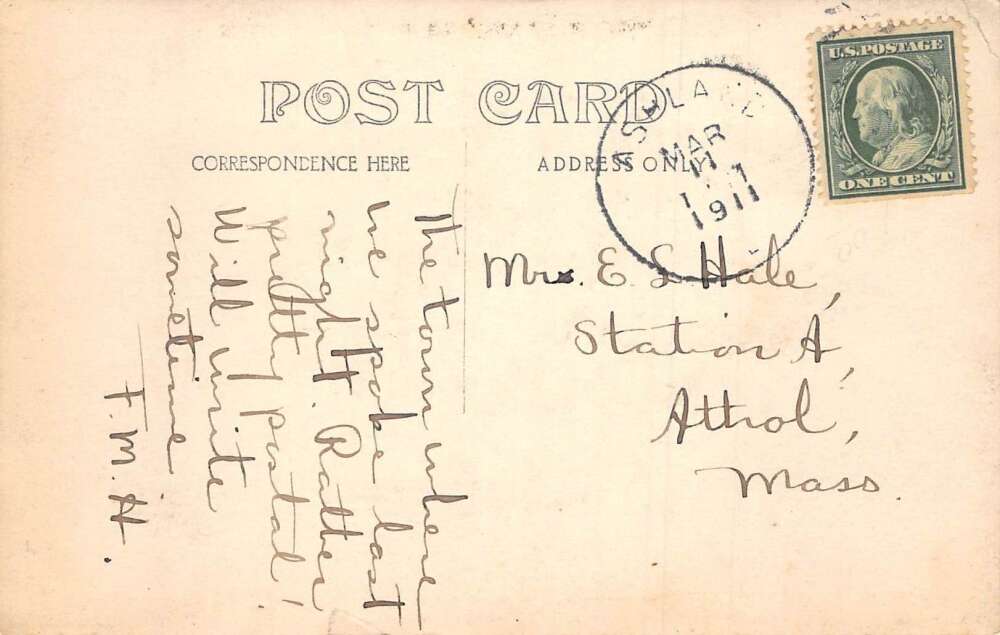 POST CARD
CORRESPONDENCE HERE
ADDRESS ONLY
ASHLAND
MAR
11
1911
U.S. POSTAGE
ONE CENT
The town where
we spoke last
night. Rather
pretty postal!
Will write
sometime
F.M.H.
Mrs. E L Hale,
Station A,
Athol,
Mass.